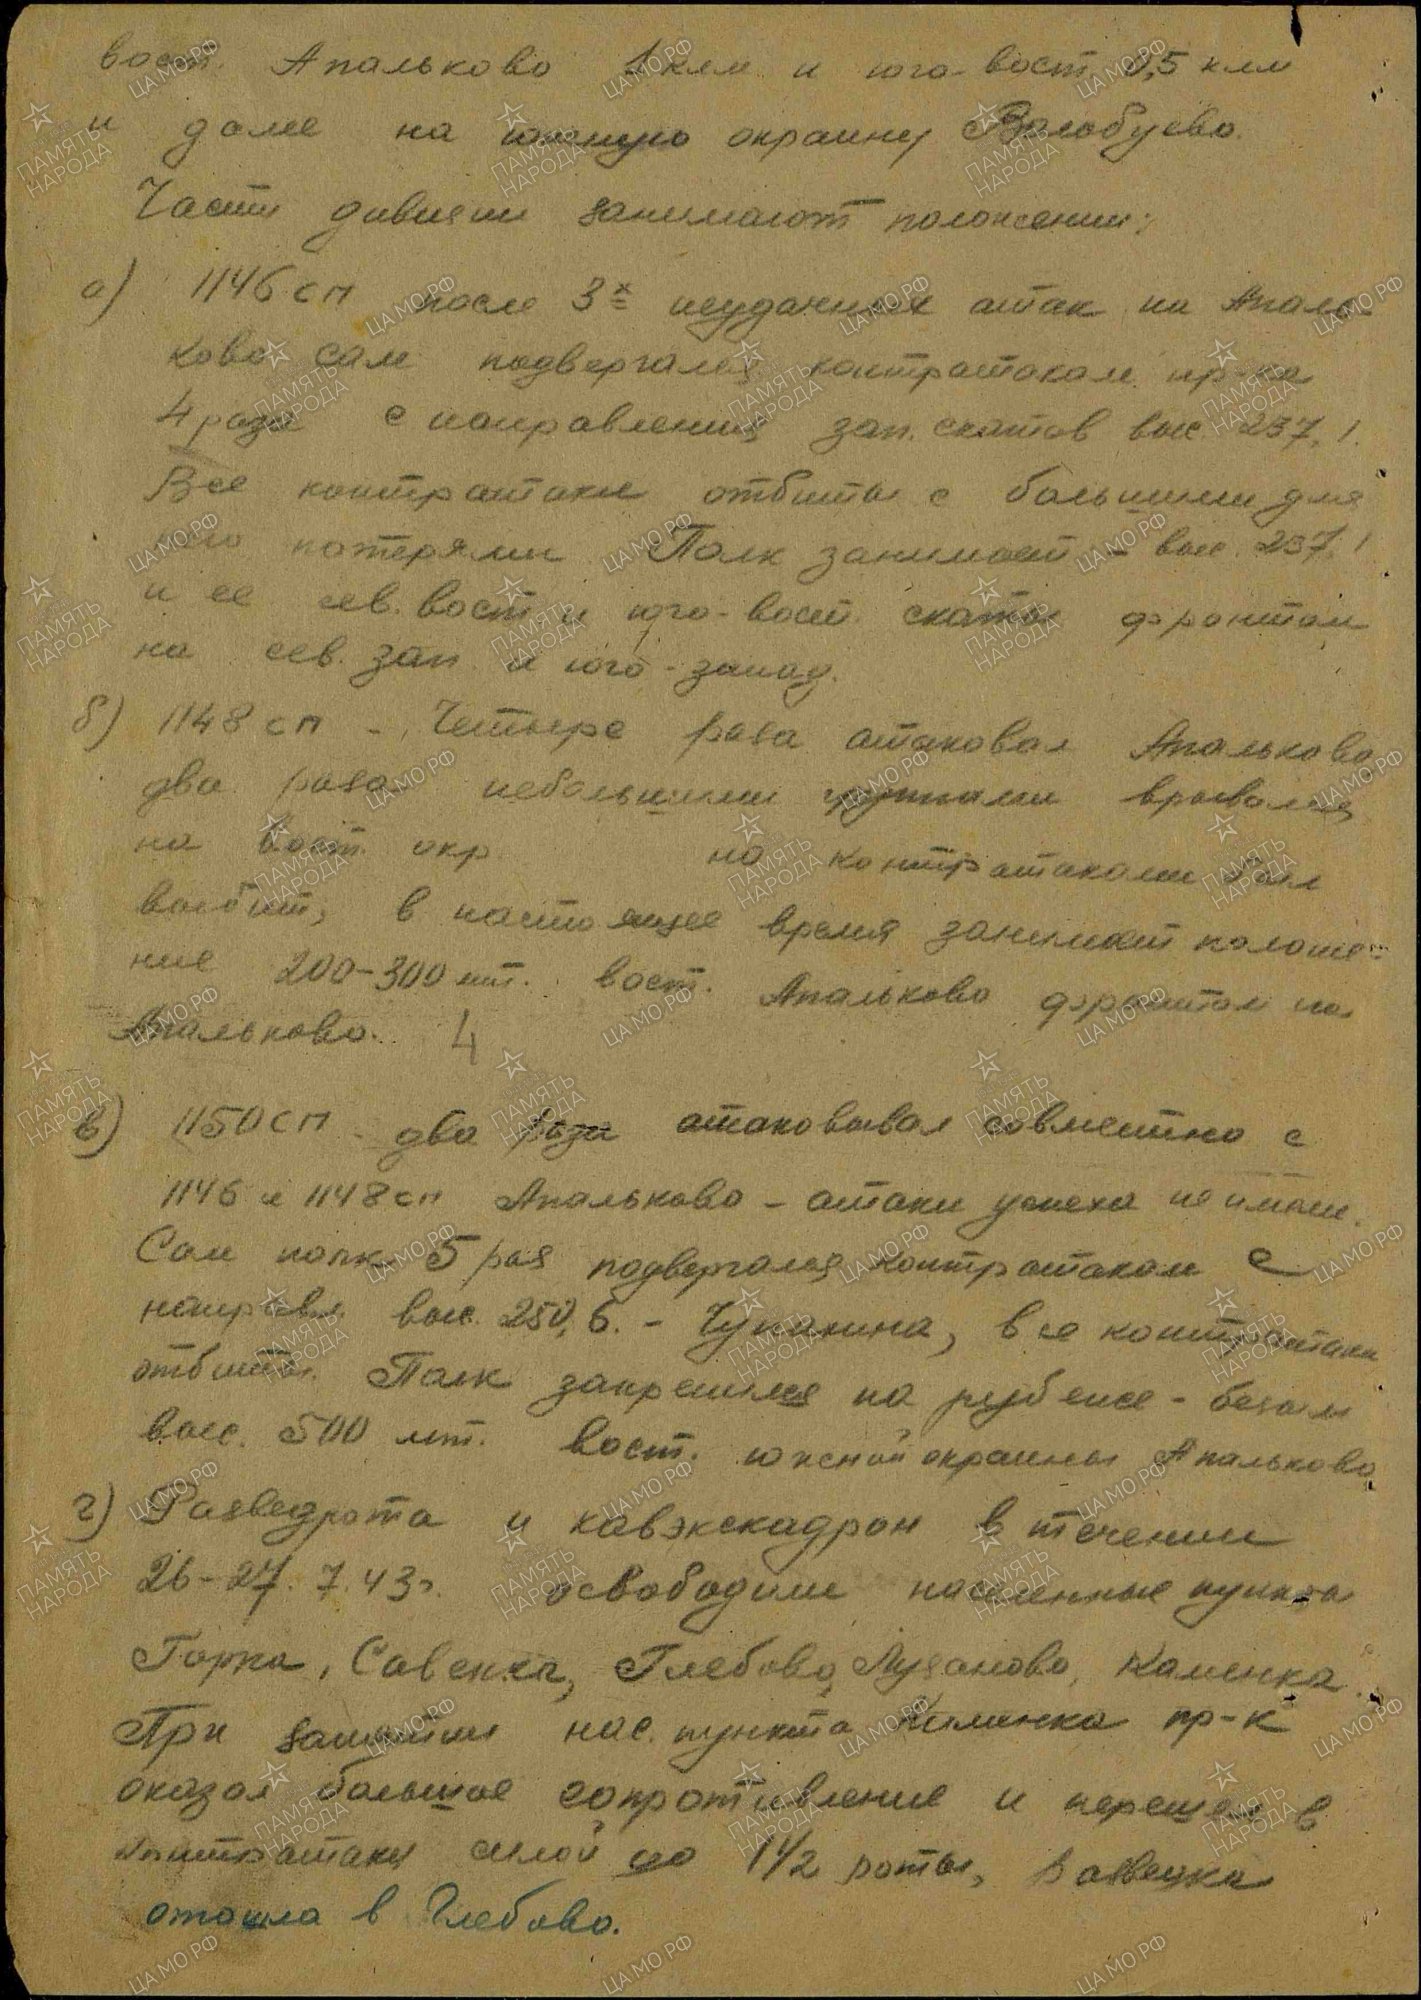 вост. Апальково 1 клм и юго-вост 0,5 клм
и далее на южную окраину Волобуево.
Части дивизии занимают положении:
а) 1146 сп после 3х неудачных атак на Апаль-
ково сам подвергался контратакам пр-ка
4 раза с направления зап. скатов выс. 237,1.
Все контратаки отбиты с большими для
него потерями. Полк занимает – выс. 237,1
и ее сев. вост и юго-вост. скаты фронтом
на сев. зап и юго-запад.
б) 1148 сп – Четыре раза атаковал Апальково
два раза небольшими группами врывался
на вост. окр но контратаками был
выбит, в настоящее время занимает положе-
ние 200-300 мт. вост. Апальково фронтом на
Апальково. 4
в) 1150 сп – два раза атаковывал совместно с
1146 и 1148 сп Апальково – атаки успеха не имели.
Сам полк 5 раз подвергался контратакам с
направл. выс. 250,6. – Чупахина, все контратаки
отбиты. Полк закрепился на рубеже – безым
выс. 500 мт. вост. южной окраины Апальково
г) Разведрота и кавэкскадрон в течении
26-27.7.43г. освободили населенные пункты
Горка, Савенка, Глебово, Лузаново, Каменка.
При занятии нас. пункта Каменка пр-к
оказал большое сопротивление и перешел в
контратаку силой до 1 1/2 роты, разведка
отошла в Глебово.
ПАМЯТЬ НАРОДА
ЦА МО РФ